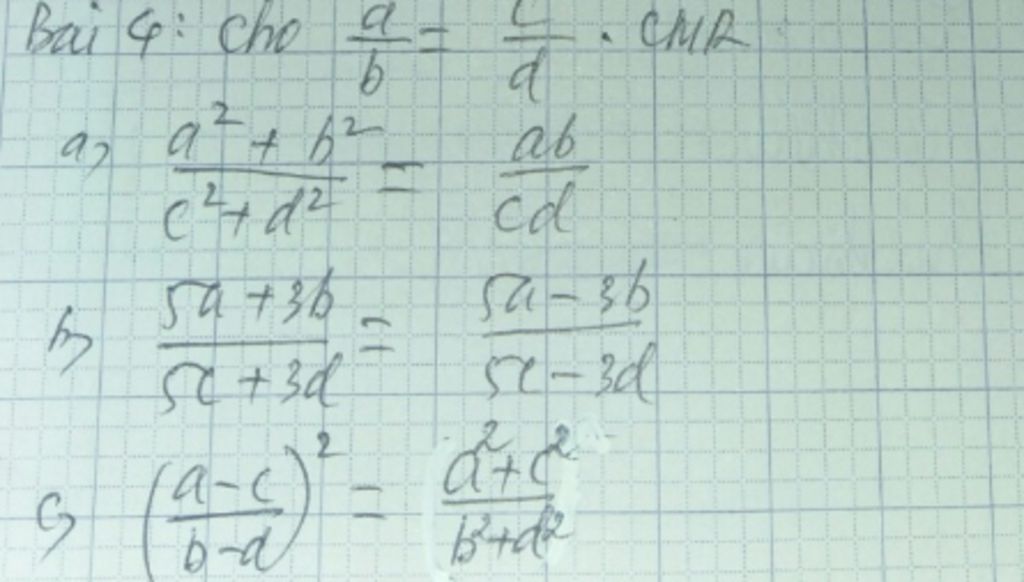 Bài 4: Cho a/b = c/d. CMR
a) (a² + b²)/(c² + d²) = ab/cd
b) (5a + 3b)/(5c + 3d) = (5a - 3b)/(5c - 3d)
c) ((a - c)/(b - d))² = (a² + c²)/(b² + d²)